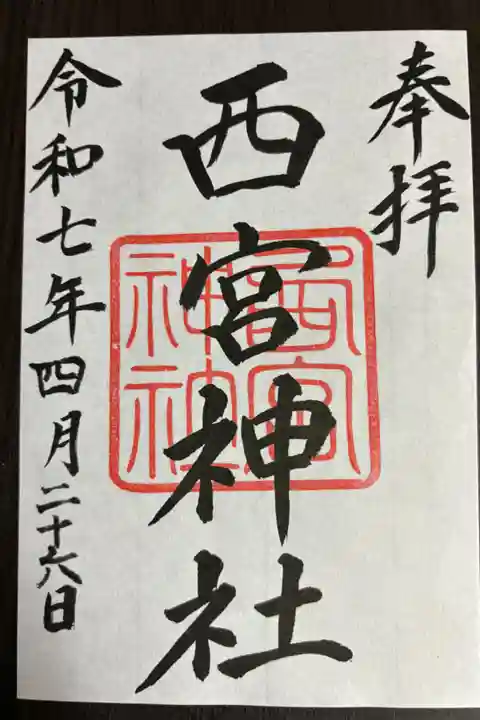 奉拝
西宮神社
西宮神社
令和七年四月二十六日